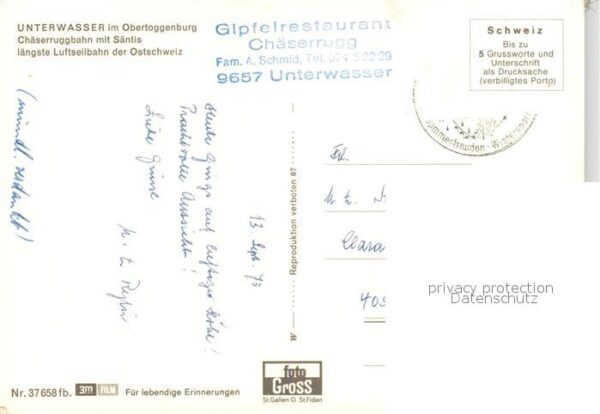 UNTERWASSER im Obertoggenburg
Chäserruggbahn mit Säntis
längste Luftseilbahn der Ostschweiz
Gipfelrestaurant
Chäserrugg
Fam. A. Schmid, Tel. 074 5 22 29
9657 Unterwasser
Schweiz
Bis zu
5 Grussworte und
Unterschrift
als Drucksache
(verbilligtes Porto)
Sommerfreuden - Wintersport
(mündl. verdankt)
13. Sept. 73
Heute Gings auf luftiger Höhe!
Prachtvolle Aussicht!
Liebe Grüsse
Reproduktion verboten 87
W
Clara
405
privacy protection
Datenschutz
foto
GROSS
St.Gallen O St.Fiden
Nr. 37658 fb. 3M FILM Für lebendige Erinnerungen